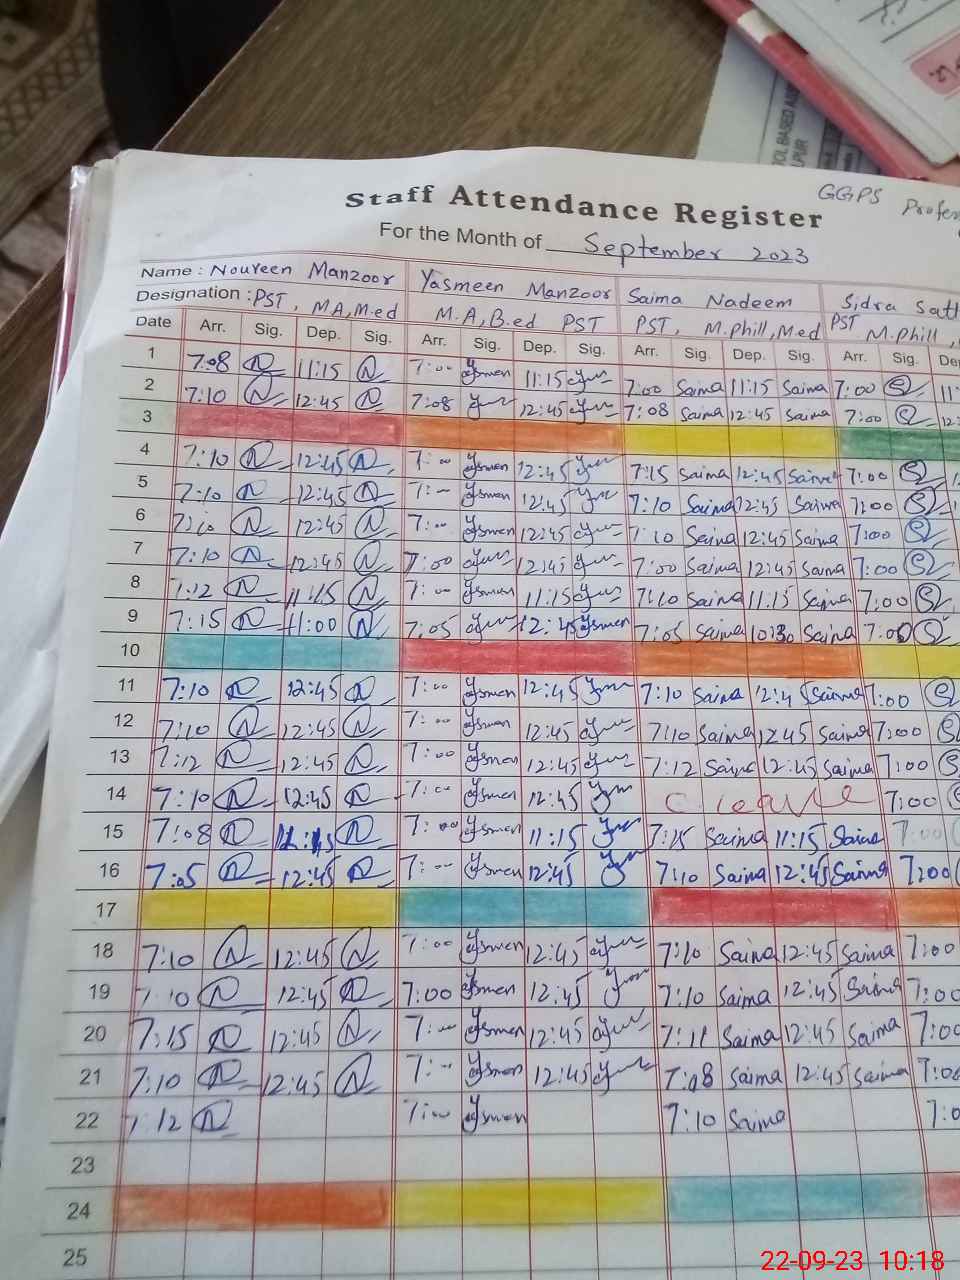 GGPS
Staff Attendance Register
For the Month of September 2023
Name : Noureen Manzoor Yasmeen Manzoor Saima Nadeem Sidra Satt
Designation : PST, MA, M.ed M.A, B.ed PST PST, M.Phill, M.ed PST M.Phill,
Date Arr. Sig. Dep. Sig. Arr. Sig. Dep. Sig. Arr. Sig. Dep. Sig. Arr. Sig. De
1 7:08 N 11:15 N 7:00 Ysmen 11:15 7:00 Saima 11:15 Saima 7:00 S 11
2 7:10 N 12:45 N 7:08 12:45 7:08 Saima 12:45 Saima 7:00 S 12
3
4 7:10 N 12:45 N 7:00 Ysmen 12:45 7:15 Saima 12:45 Saima 7:00 S
5 7:10 N 12:45 N 7:00 Ysmen 12:45 7:10 Saima 12:45 Saima 7:00 S
6 7:10 N 12:45 N 7:00 Ysmen 12:45 7:10 Saima 12:45 Saima 7:00 S
7 7:10 N 12:45 N 7:00 12:45 7:00 Saima 12:45 Saima 7:00 S
8 7:12 N 11:15 N 7:00 Ysmen 11:15 7:10 Saima 11:15 Saima 7:00 S
9 7:15 N 11:00 N 7:05 12:45 Ysmen 7:05 Saima 10:30 Saima 7:00 S
10
11 7:10 N 12:45 N 7:00 Ysmen 12:45 7:10 Saima 12:4 Saima 7:00 S
12 7:10 N 12:45 N 7:00 Ysmen 12:45 7:10 Saima 12:45 Saima 7:00 S
13 7:12 N 12:45 N 7:00 Ysmen 12:45 7:12 Saima 12:45 Saima 7:00 S
14 7:10 N 12:45 N 7:00 Ysmen 12:45 C. leave 7:00
15 7:08 N N 7:00 Ysmen 11:15 7:15 Saima 11:15 Saima 7:00
16 7:05 N 12:45 N 7:00 Ysmen 12:45 7:10 Saima 12:45 Saima 7:00
17
18 7:10 N 12:45 N 7:00 Ysmen 12:45 7:10 Saima 12:45 Saima 7:00
19 7:10 N 12:45 N 7:00 Ysmen 12:45 7:10 Saima 12:45 Saima 7:00
20 7:15 N 12:45 N 7:00 Ysmen 12:45 7:11 Saima 12:45 Saima 7:00
21 7:10 N 12:45 N 7:00 Ysmen 12:45 7:08 Saima 12:45 Saima 7:00
22 7:12 N 7:00 Ysmen 7:10 Saima 7:0
23
24
25
22-09-23 10:18